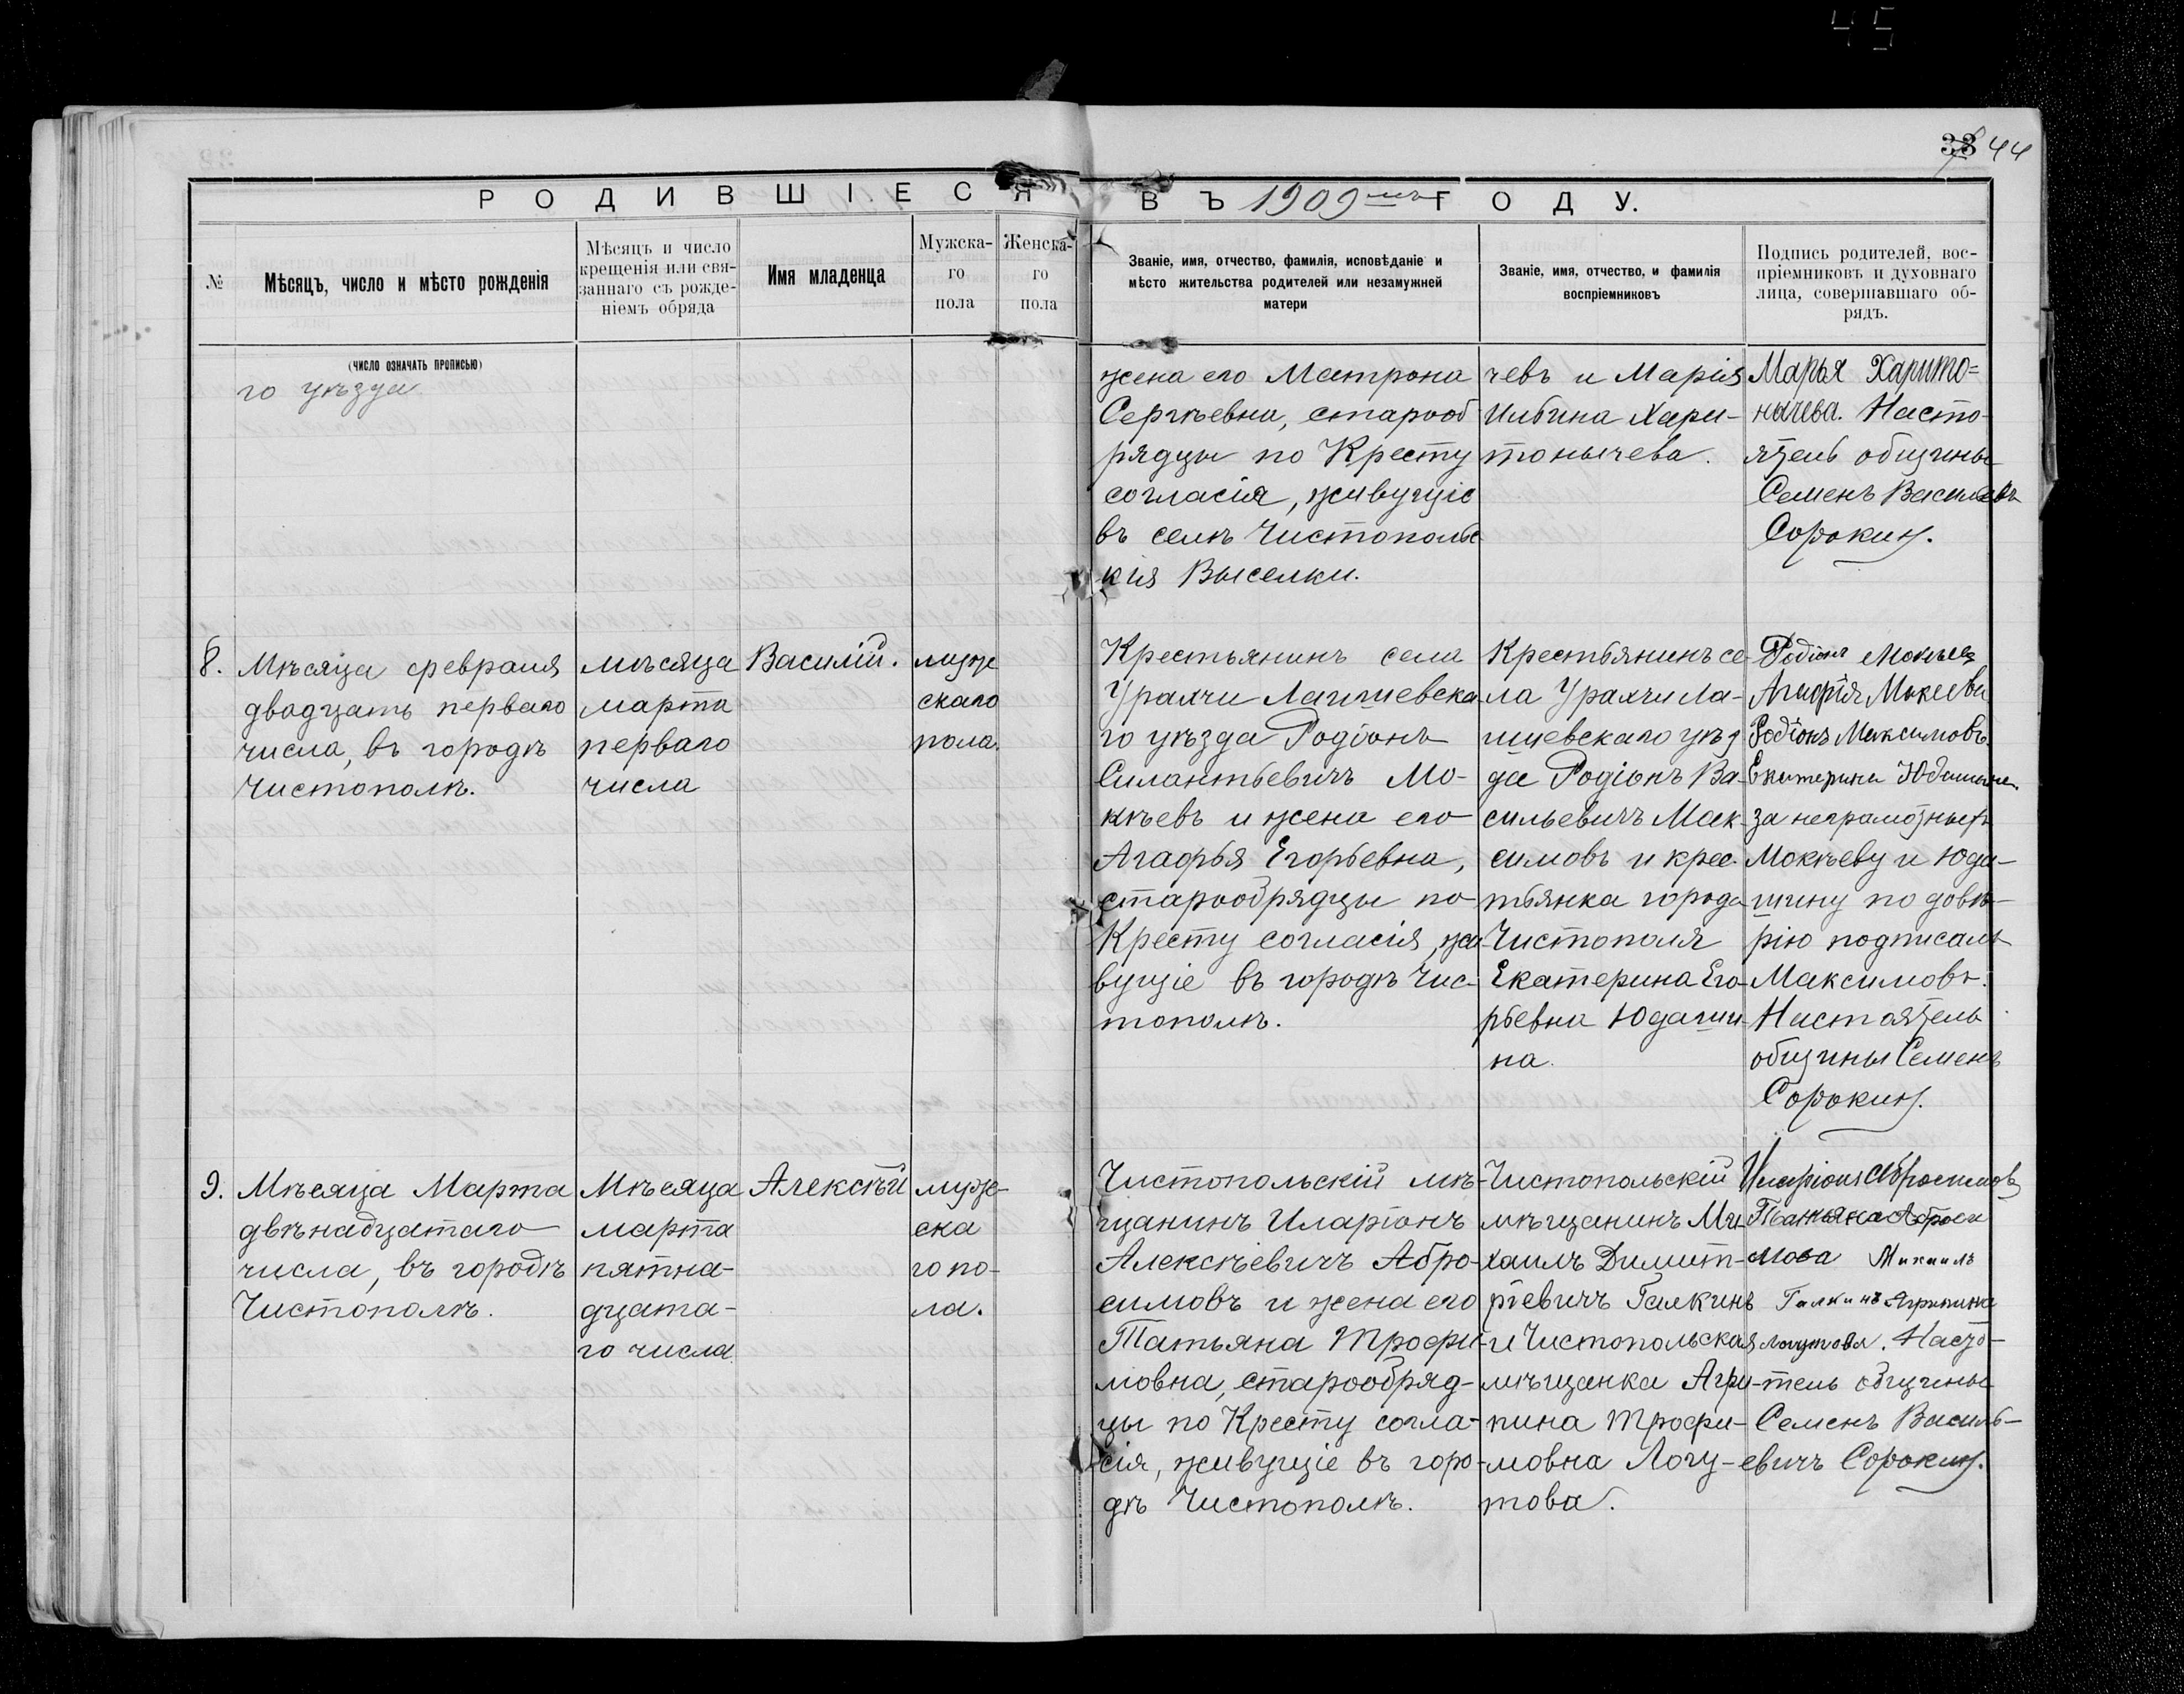 45
33 44
РОДИВШІЕСЯ
ВЪ 1909мъ ГОДУ.
№
Мѣсяцъ, число и мѣсто рожденія
Мѣсяцъ и число
крещенія или свя-
заннаго съ рожде-
ніемъ обряда
Имя младенца
Мужска-
го
пола
Женска-
го
пола
Званіе, имя, отчество, фамилія, исповѣданіе и
мѣсто жительства родителей или незамужней
матери
Званіе, имя, отчество, и фамилія
воспріемниковъ
Подпись родителей, вос-
пріемниковъ и духовнаго
лица, совершавшаго об-
рядъ.
(число означать прописью)
го уѣзда
жена его Матрона
Сергѣевна, старооб
рядцы по Кресту
согласія, живущіе
въ селѣ Чистопольс
кія Выселки.
чевъ и Марія
Хари-
тонычева.
Марья Харито=
нычева. Насто-
ятель общины
Семенъ Васильевъ
Сорокинъ.
8.
Мѣсяца февраля
двадцать перваго
числа, въ городѣ
Чистополѣ.
мѣсяца
марта
перваго
числа
Василій.
муже
скаго
пола.
Крестьянинъ села
Урахчи Лаишевска
го уѣзда Родіонъ
Силантьевичъ Мо-
кѣевъ и жена его
Агафья Егорьевна,
старообрядцы по
Кресту согласія, жи
вущіе въ городѣ Чис-
тополѣ.
Крестьянинъ се-
ла Урахчи Ла-
ишевскаго уѣз
да Родіонъ Ва-
сильевичъ Мак-
симовъ и крес-
тьянка города
Чистополя
Екатерина Его-
рьевна Юдаши-
на.
Родіонъ Мокѣевъ
Агафія Мокеева
Родіонъ Максимовъ.
Екатерина Юдашина.
за неграмотныхъ
Мокѣеву и Юда-
шину по довѣ-
рію подписалъ
Максимовъ.
Настоятель
общины Семенъ
Сорокинъ.
9.
Мѣсяца Марта
двѣнадцатаго
числа, въ городѣ
Чистополѣ.
Мѣсяца
марта
пятна-
дцата-
го числа
Алексѣй
муже-
ска
го по-
ла.
Чистопольскій мѣ-
щанинъ Иларіонъ
Алексѣевичъ Абро-
симовъ и жена его
Татьяна Трофи-
мовна, старообряд-
цы по Кресту согла-
сія, живущіе въ горо-
дѣ Чистополѣ.
Чистопольскій
мѣщанинъ Ми-
хаилъ Димит-
ріевичъ Галкинъ
и Чистопольская
мѣщанка Агри-
пина Трофи-
мовна Логу-
това.
Иларіонъ Абросимовъ
Татьяна Аброси
мова Михаилъ
Галкинъ Агрипина
Логутова. Насто-
тель общины
Семенъ Василь-
евичъ Сорокинъ.